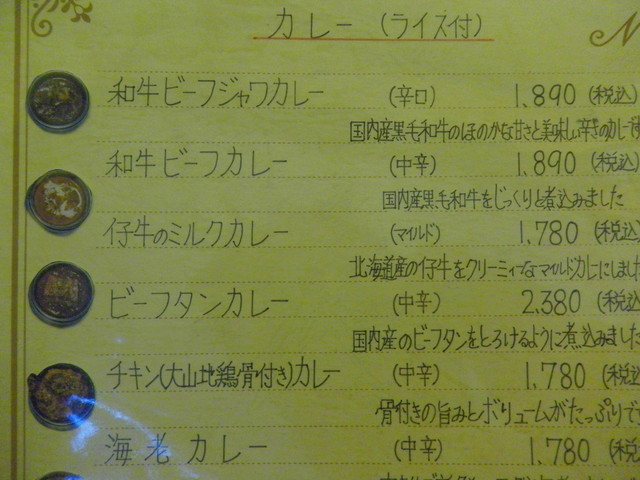 カレー (ライス付)
和牛ビーフジャワカレー (辛口) 1,890 (税込)
国内産黒毛和牛のほのかな甘さと美味しい辛さのカレー
和牛ビーフカレー (中辛) 1,890 (税込)
国内産黒毛和牛をじっくりと煮込みました
仔牛のミルクカレー (マイルド) 1,780 (税込
北海道産の仔牛をクリーミィなマイルドカレーにしました
ビーフタンカレー (中辛) 2,380 (税込
国内産のビーフタンをとろけるように煮込みました
チキン(大山地鶏骨付き)カレー (中辛) 1,780 (税込
骨付きの旨みとボリュームがたっぷりで
海老カレー (中辛) 1,780 (税込